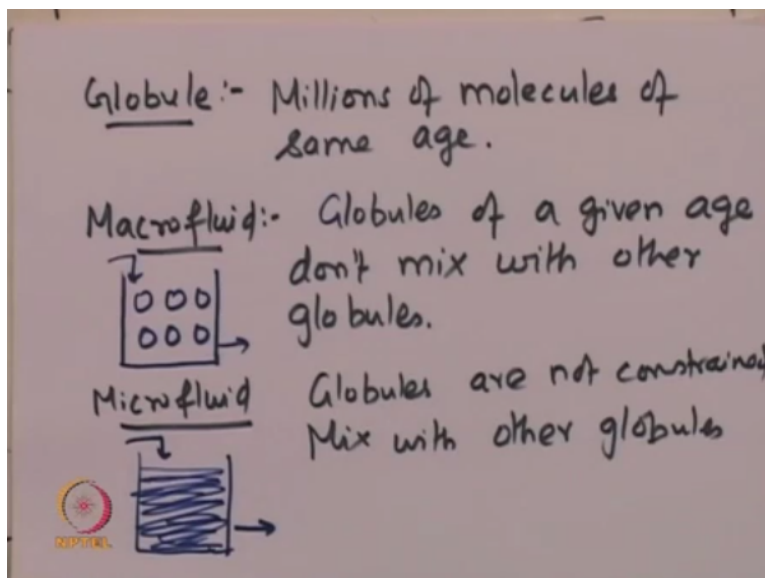 Globule:- Millions of molecules of
same age.
Macrofluid:- Globules of a given age
don't mix with other
globules.
Microfluid Globules are not constrained
Mix with other globules
NPTEL